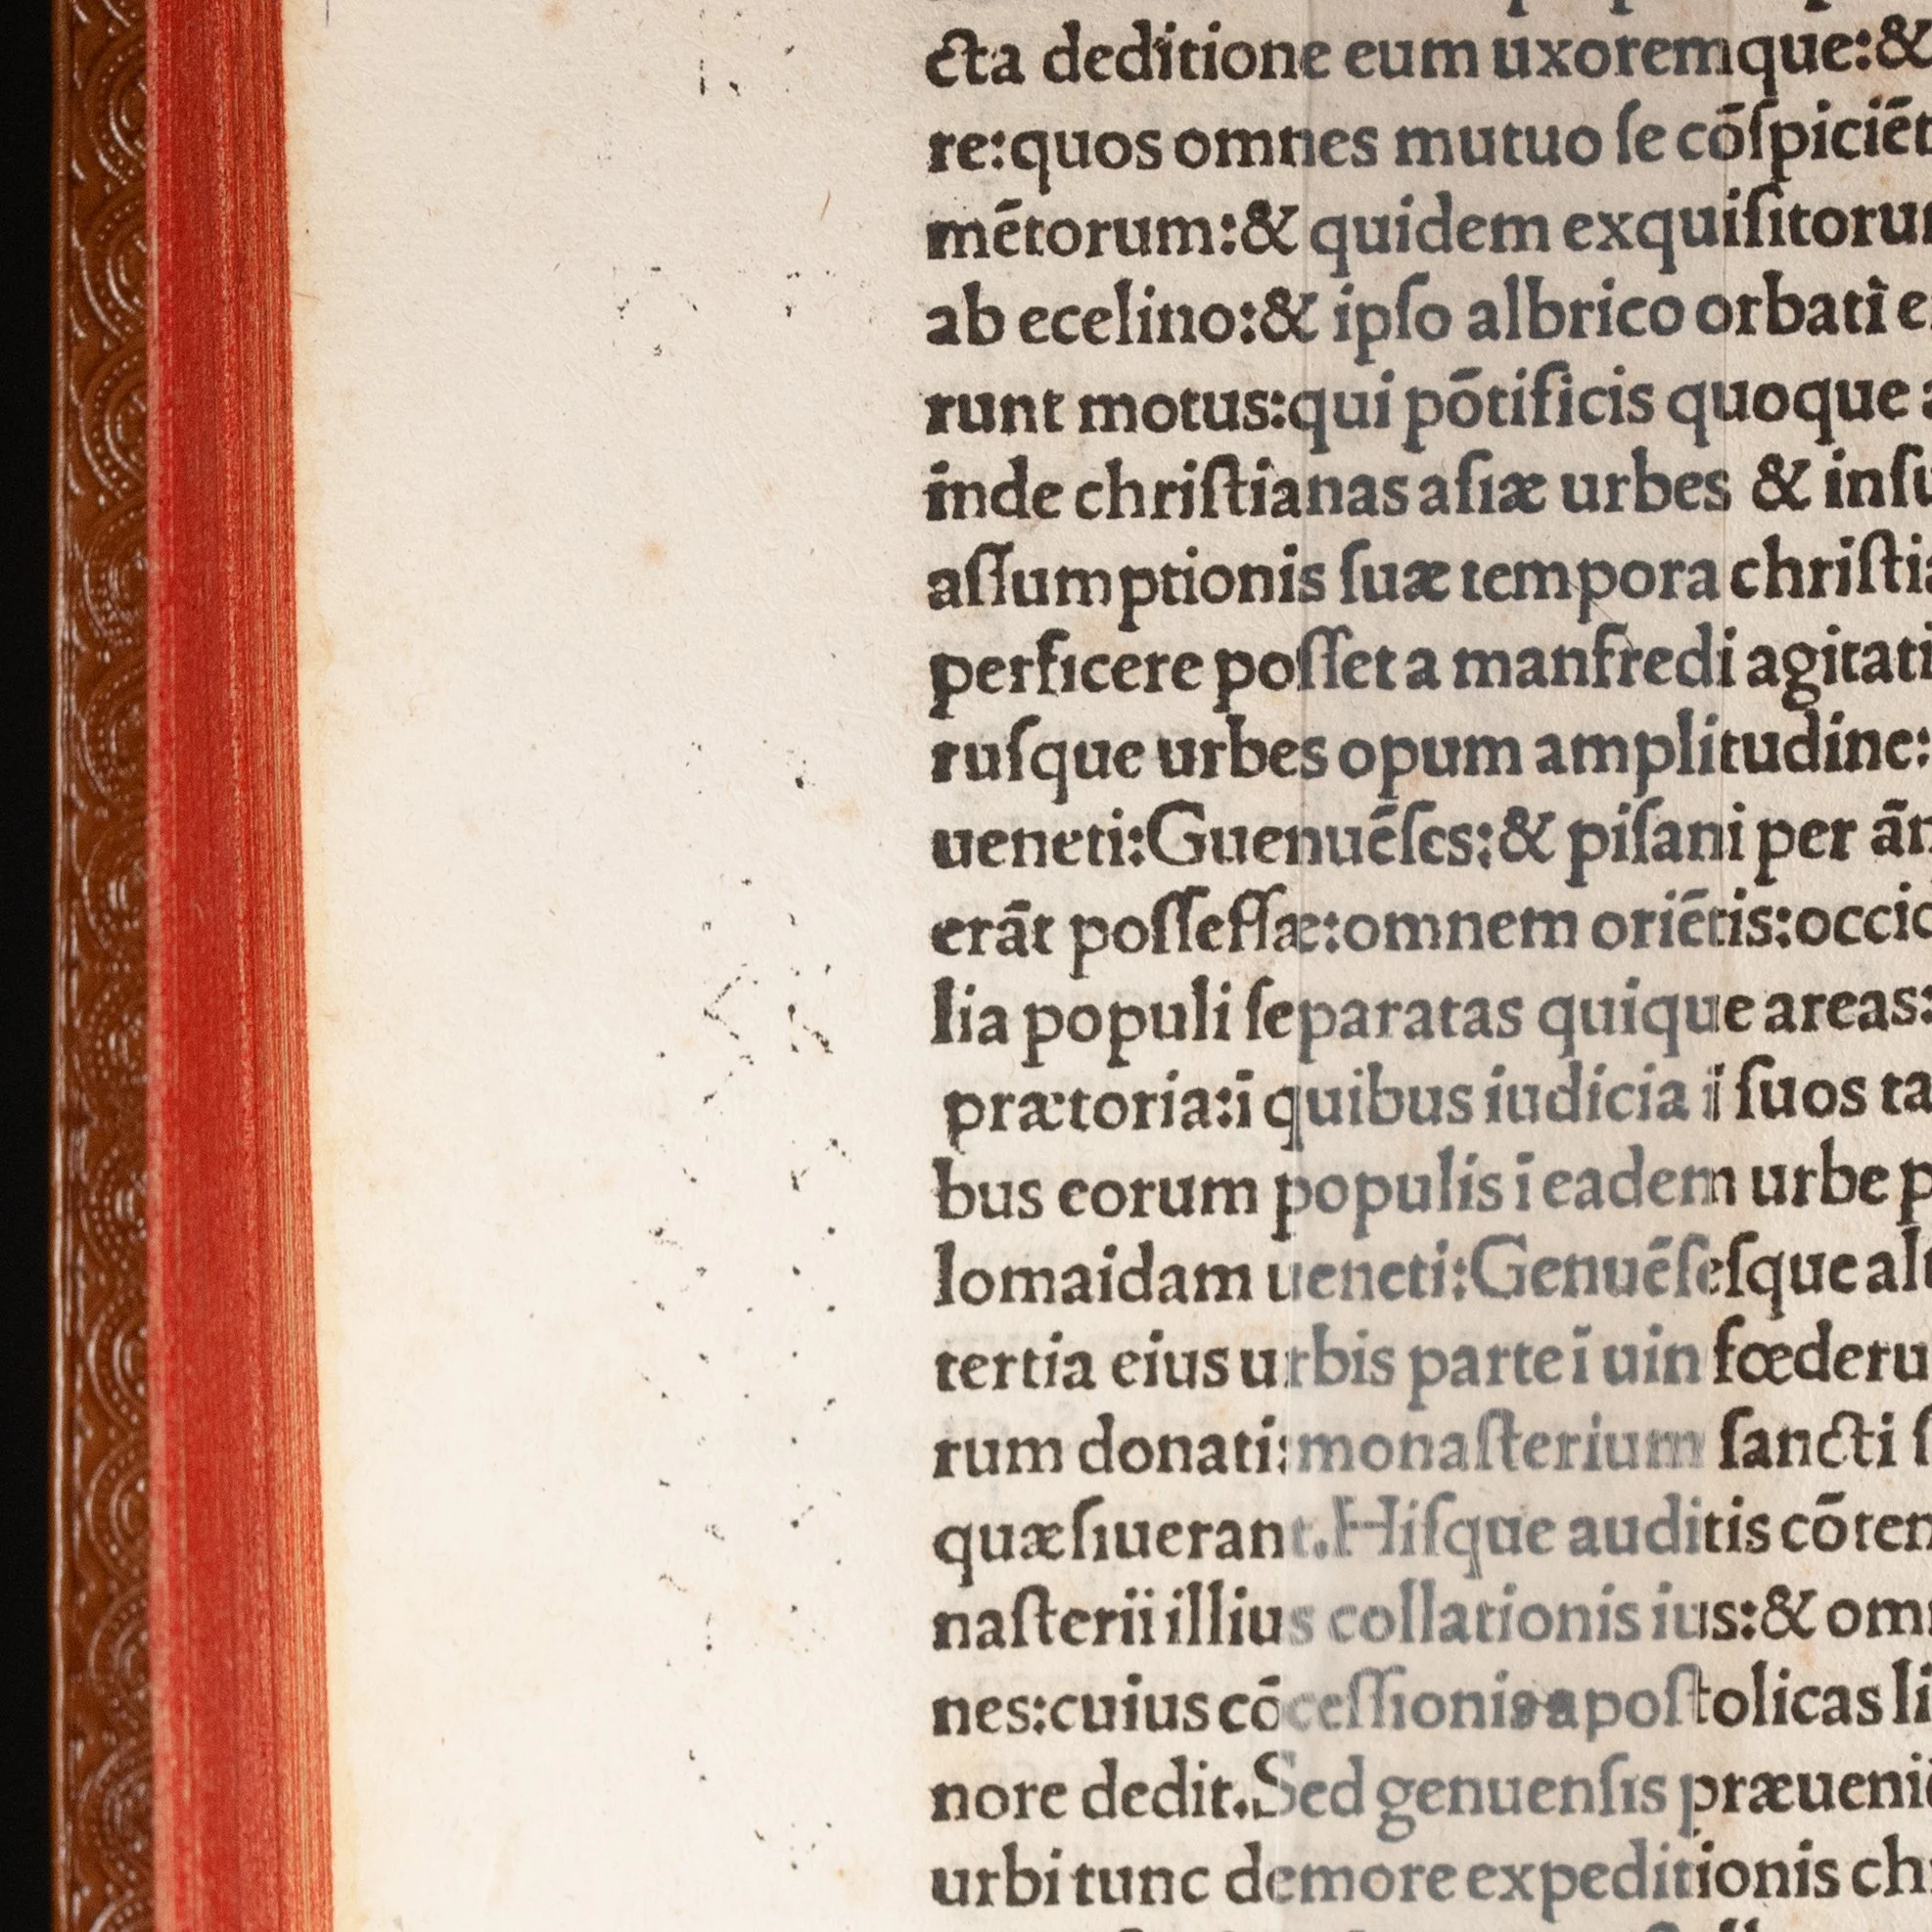 cta deditione eum uxoremque:&
re:quos omnes mutuo ſe cōſpiciēt
mētorum:& quidem exquiſitoru
ab ecelino:& ipſo albrico orbati e
runt motus:qui pōtificis quoque a
inde chriſtianas aſiæ urbes & inſu
aſſumptionis ſuæ tempora chriſtia
perficere poſſet a manfredi agitati
ruſque urbes opum amplitudine:
ueneti:Guenuēſes:& piſani per ān
erāt poſſeſſæ:omnem oriētis:occid
lia populi ſeparatas quique areas:
prætoria:ī quibus iudicia ī ſuos ta
bus eorum populis ī eadem urbe p
lomaidam ueneti:Genuēſeſque ali
tertia eius urbis parte ī uin fœderu
rum donati:monaſterium ſancti ſ
quæſiuerant.Hiſque auditis cōten
naſterii illius collationis ius:& om
nes:cuius cōceſſionis apoſtolicas li
nore dedit.Sed genuenſis præueni
urbi tunc de more expeditionis ch